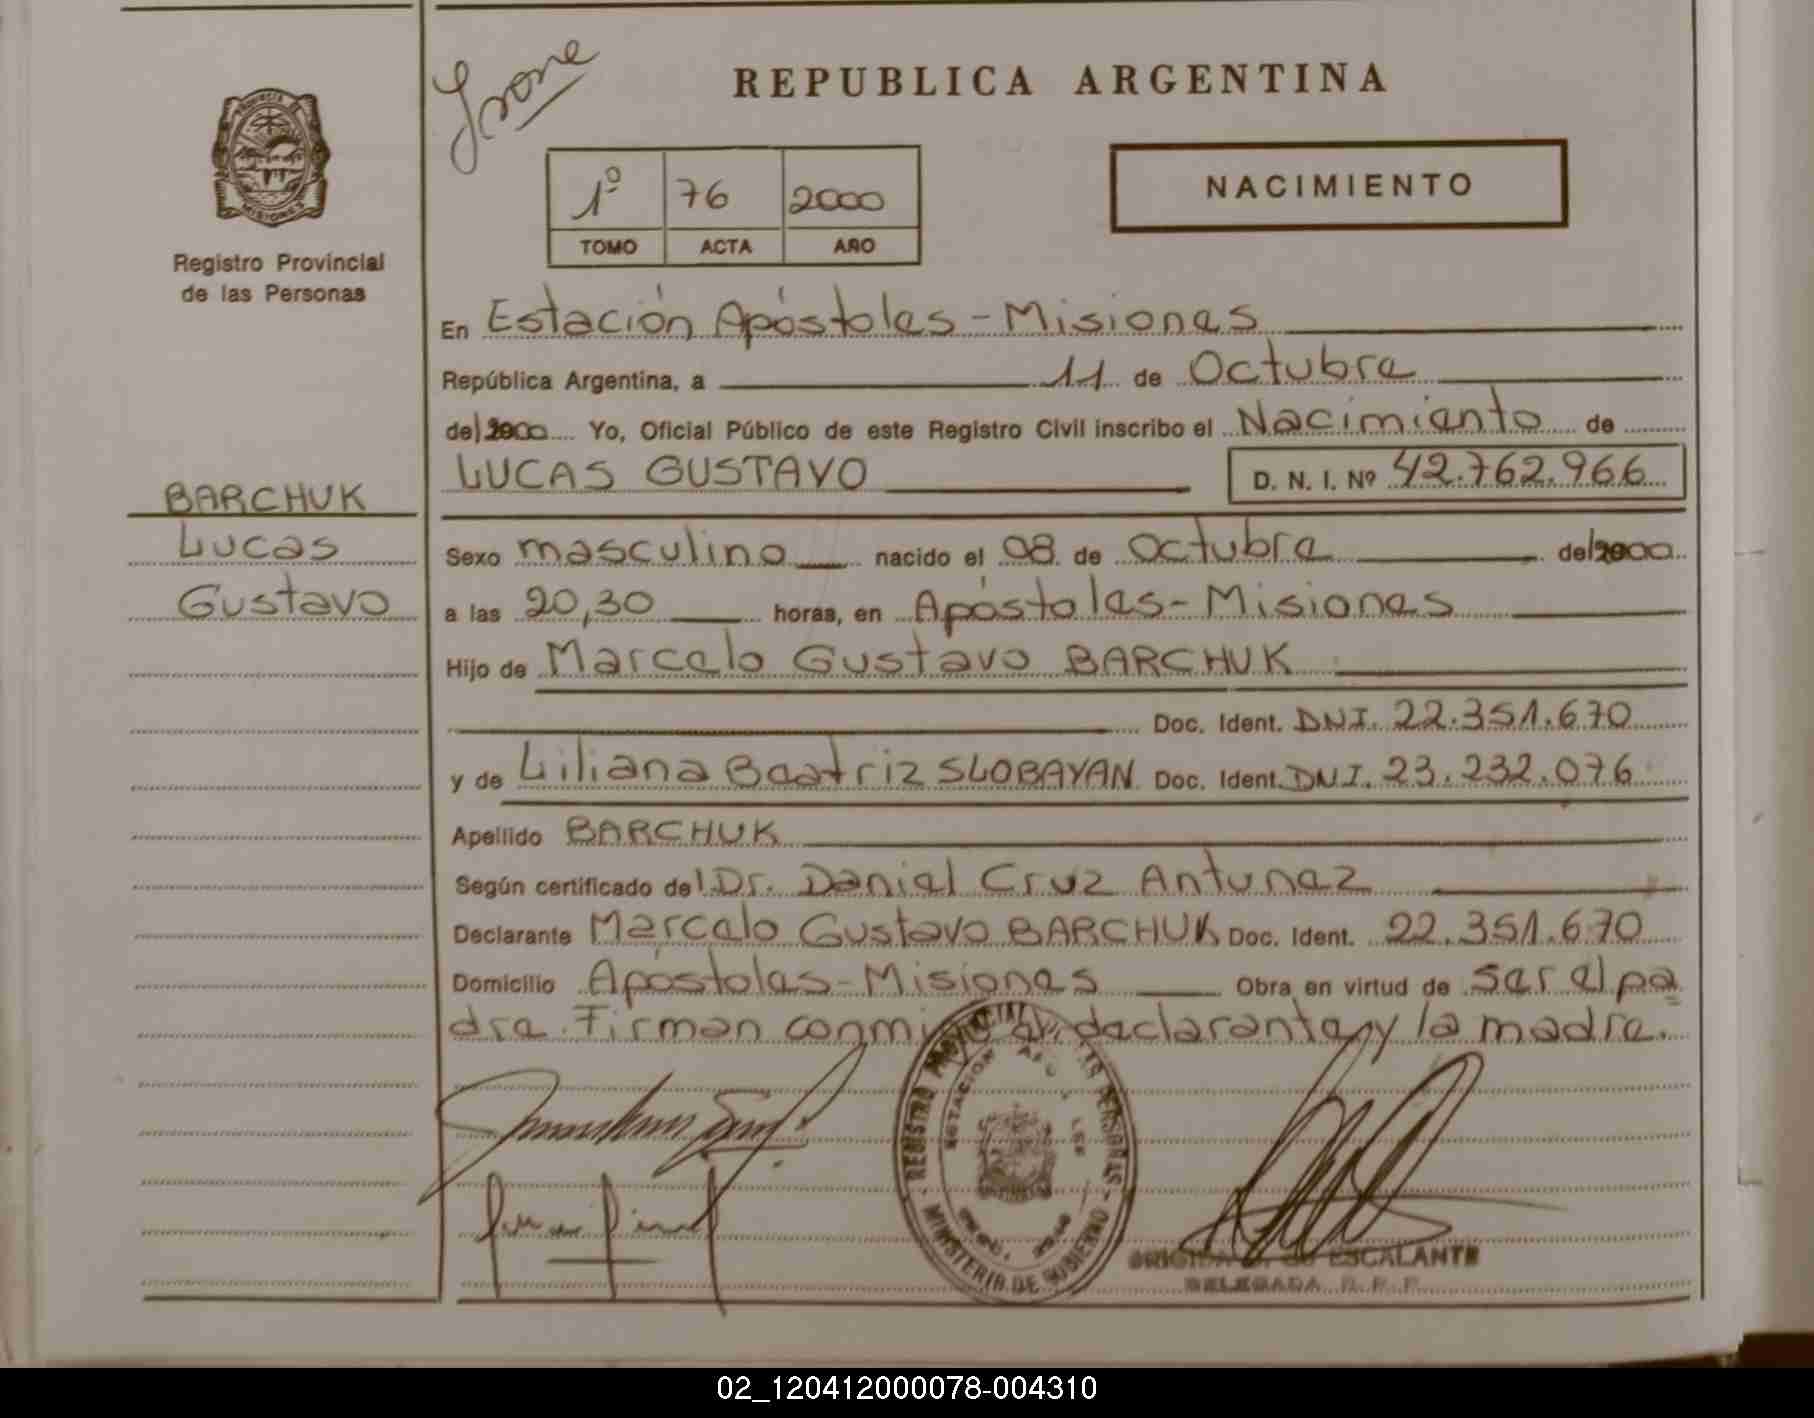 REPUBLICA ARGENTINA
1º 76 2000
TOMO ACTA AÑO
NACIMIENTO
Registro Provincial
de las Personas
BARCHUK
Lucas
Gustavo
En Estación Apóstoles - Misiones
República Argentina, a 11 de Octubre
de 2000 Yo, Oficial Público de este Registro Civil inscribo el Nacimiento de
LUCAS GUSTAVO D. N. I. Nº 42.762.966
Sexo masculino nacido el 08 de Octubre de 2000
a las 20,30 horas, en Apóstoles - Misiones
Hijo de Marcelo Gustavo BARCHUK
Doc. Ident. DNI. 22.351.670
y de Liliana Beatriz SLOBAYAN Doc. Ident. DNI. 23.232.076
Apellido BARCHUK
Según certificado del Dr. Daniel Cruz Antunez
Declarante Marcelo Gustavo BARCHUK Doc. Ident. 22.351.670
Domicilio Apóstoles - Misiones Obra en virtud de ser el pa
dre. Firman conmigo el declarante y la madre.
REGISTRO PROVINCIAL DE LAS PERSONAS
ESTACION APOSTOLES
MINISTERIO DE GOBIERNO
ESCALANTE
DELEGADA R. P. P.
02_120412000078-004310